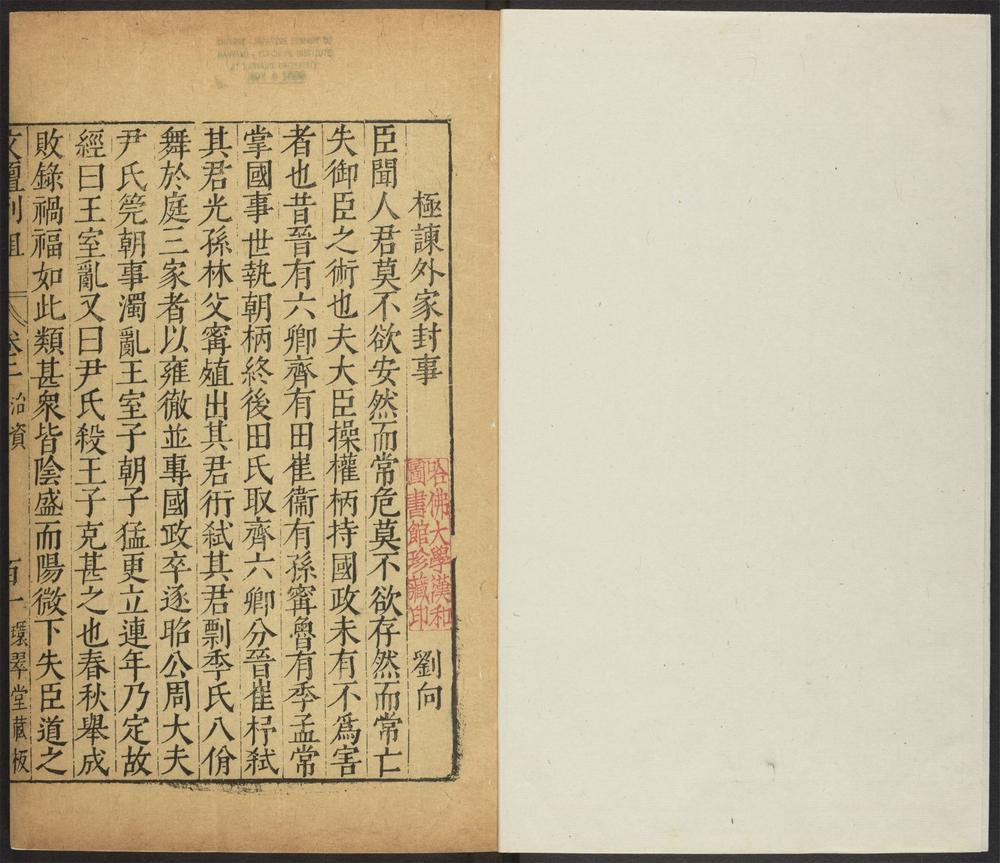 極諫外家封事 劉向
臣聞人君莫不欲安然而常危莫不欲存然而常亡
失御臣之術也夫大臣操權柄持國政未有不爲害
者也昔晉有六卿齊有田崔衞有孫甯魯有季孟常
掌國事世執朝柄終後田氏取齊六卿分晉崔杼弑
其君光孫林父甯殖出其君衎弑其君剽季氏八佾
舞於庭三家者以雍徹並專國政卒逐昭公周大夫
尹氏筦朝事濁亂王室子朝子猛更立連年乃定故
經曰王室亂又曰尹氏殺王子克甚之也春秋舉成
敗錄禍福如此類甚衆皆陰盛而陽微下失臣道之
文壇列俎 卷二 治資 百一 環翠堂藏板
哈佛大學漢和
圖書館珍藏印